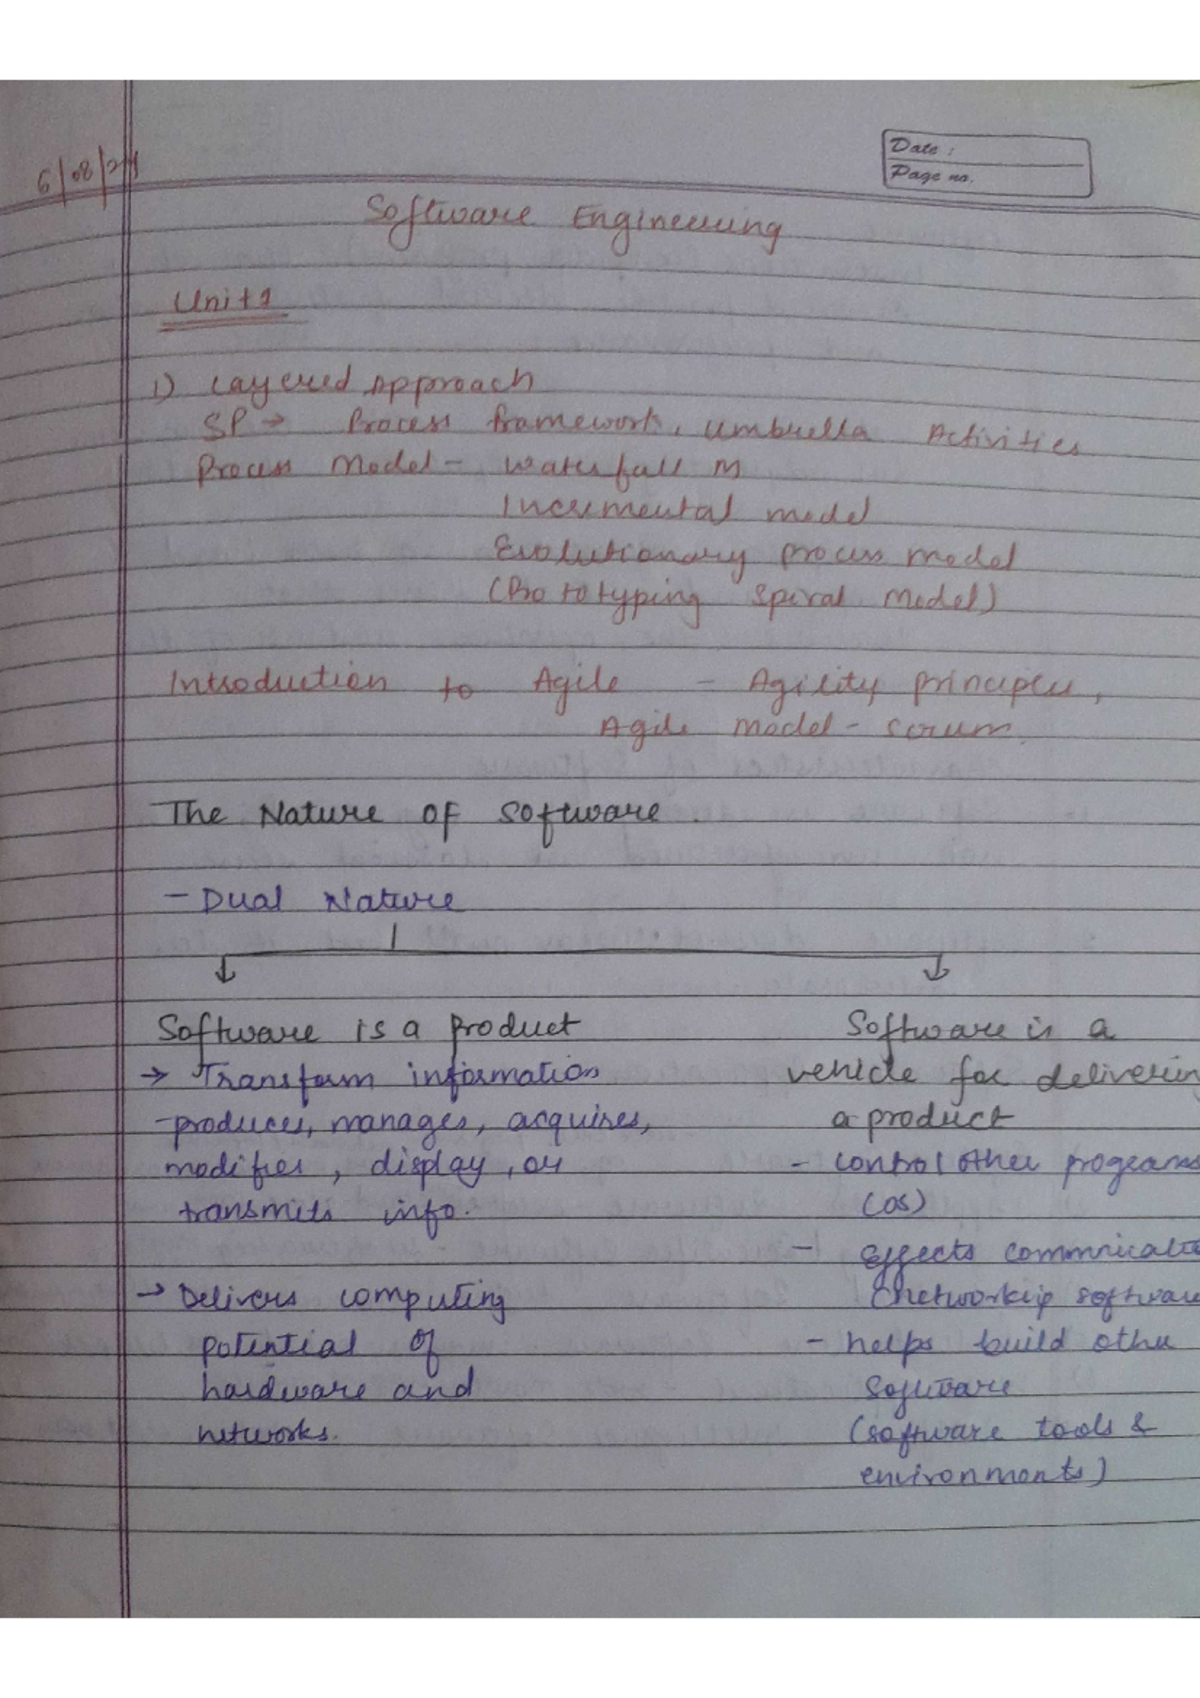 Date :
Page no.
6/08/24
Software Engineering
Unit 1
1) Layered Approach
SP → Process framework, umbrella Activities
Process Model - Waterfall M
Incremental model
Evolutionary process model
(Prototyping Spiral Model)
Introduction to Agile - Agility principles,
Agile model - scrum.
The Nature of software
- Dual Nature
Software is a product
→ Transform information
- produces, manages, acquires,
modifies, display, or
transmits info.
→ Delivers computing
potential of
hardware and
networks.
Software is a
vehicle for deliverin
a product
- control other programs
(OS)
- Effects commnicati
(networkig software
- helps build other
Software
(software tools &
environments)